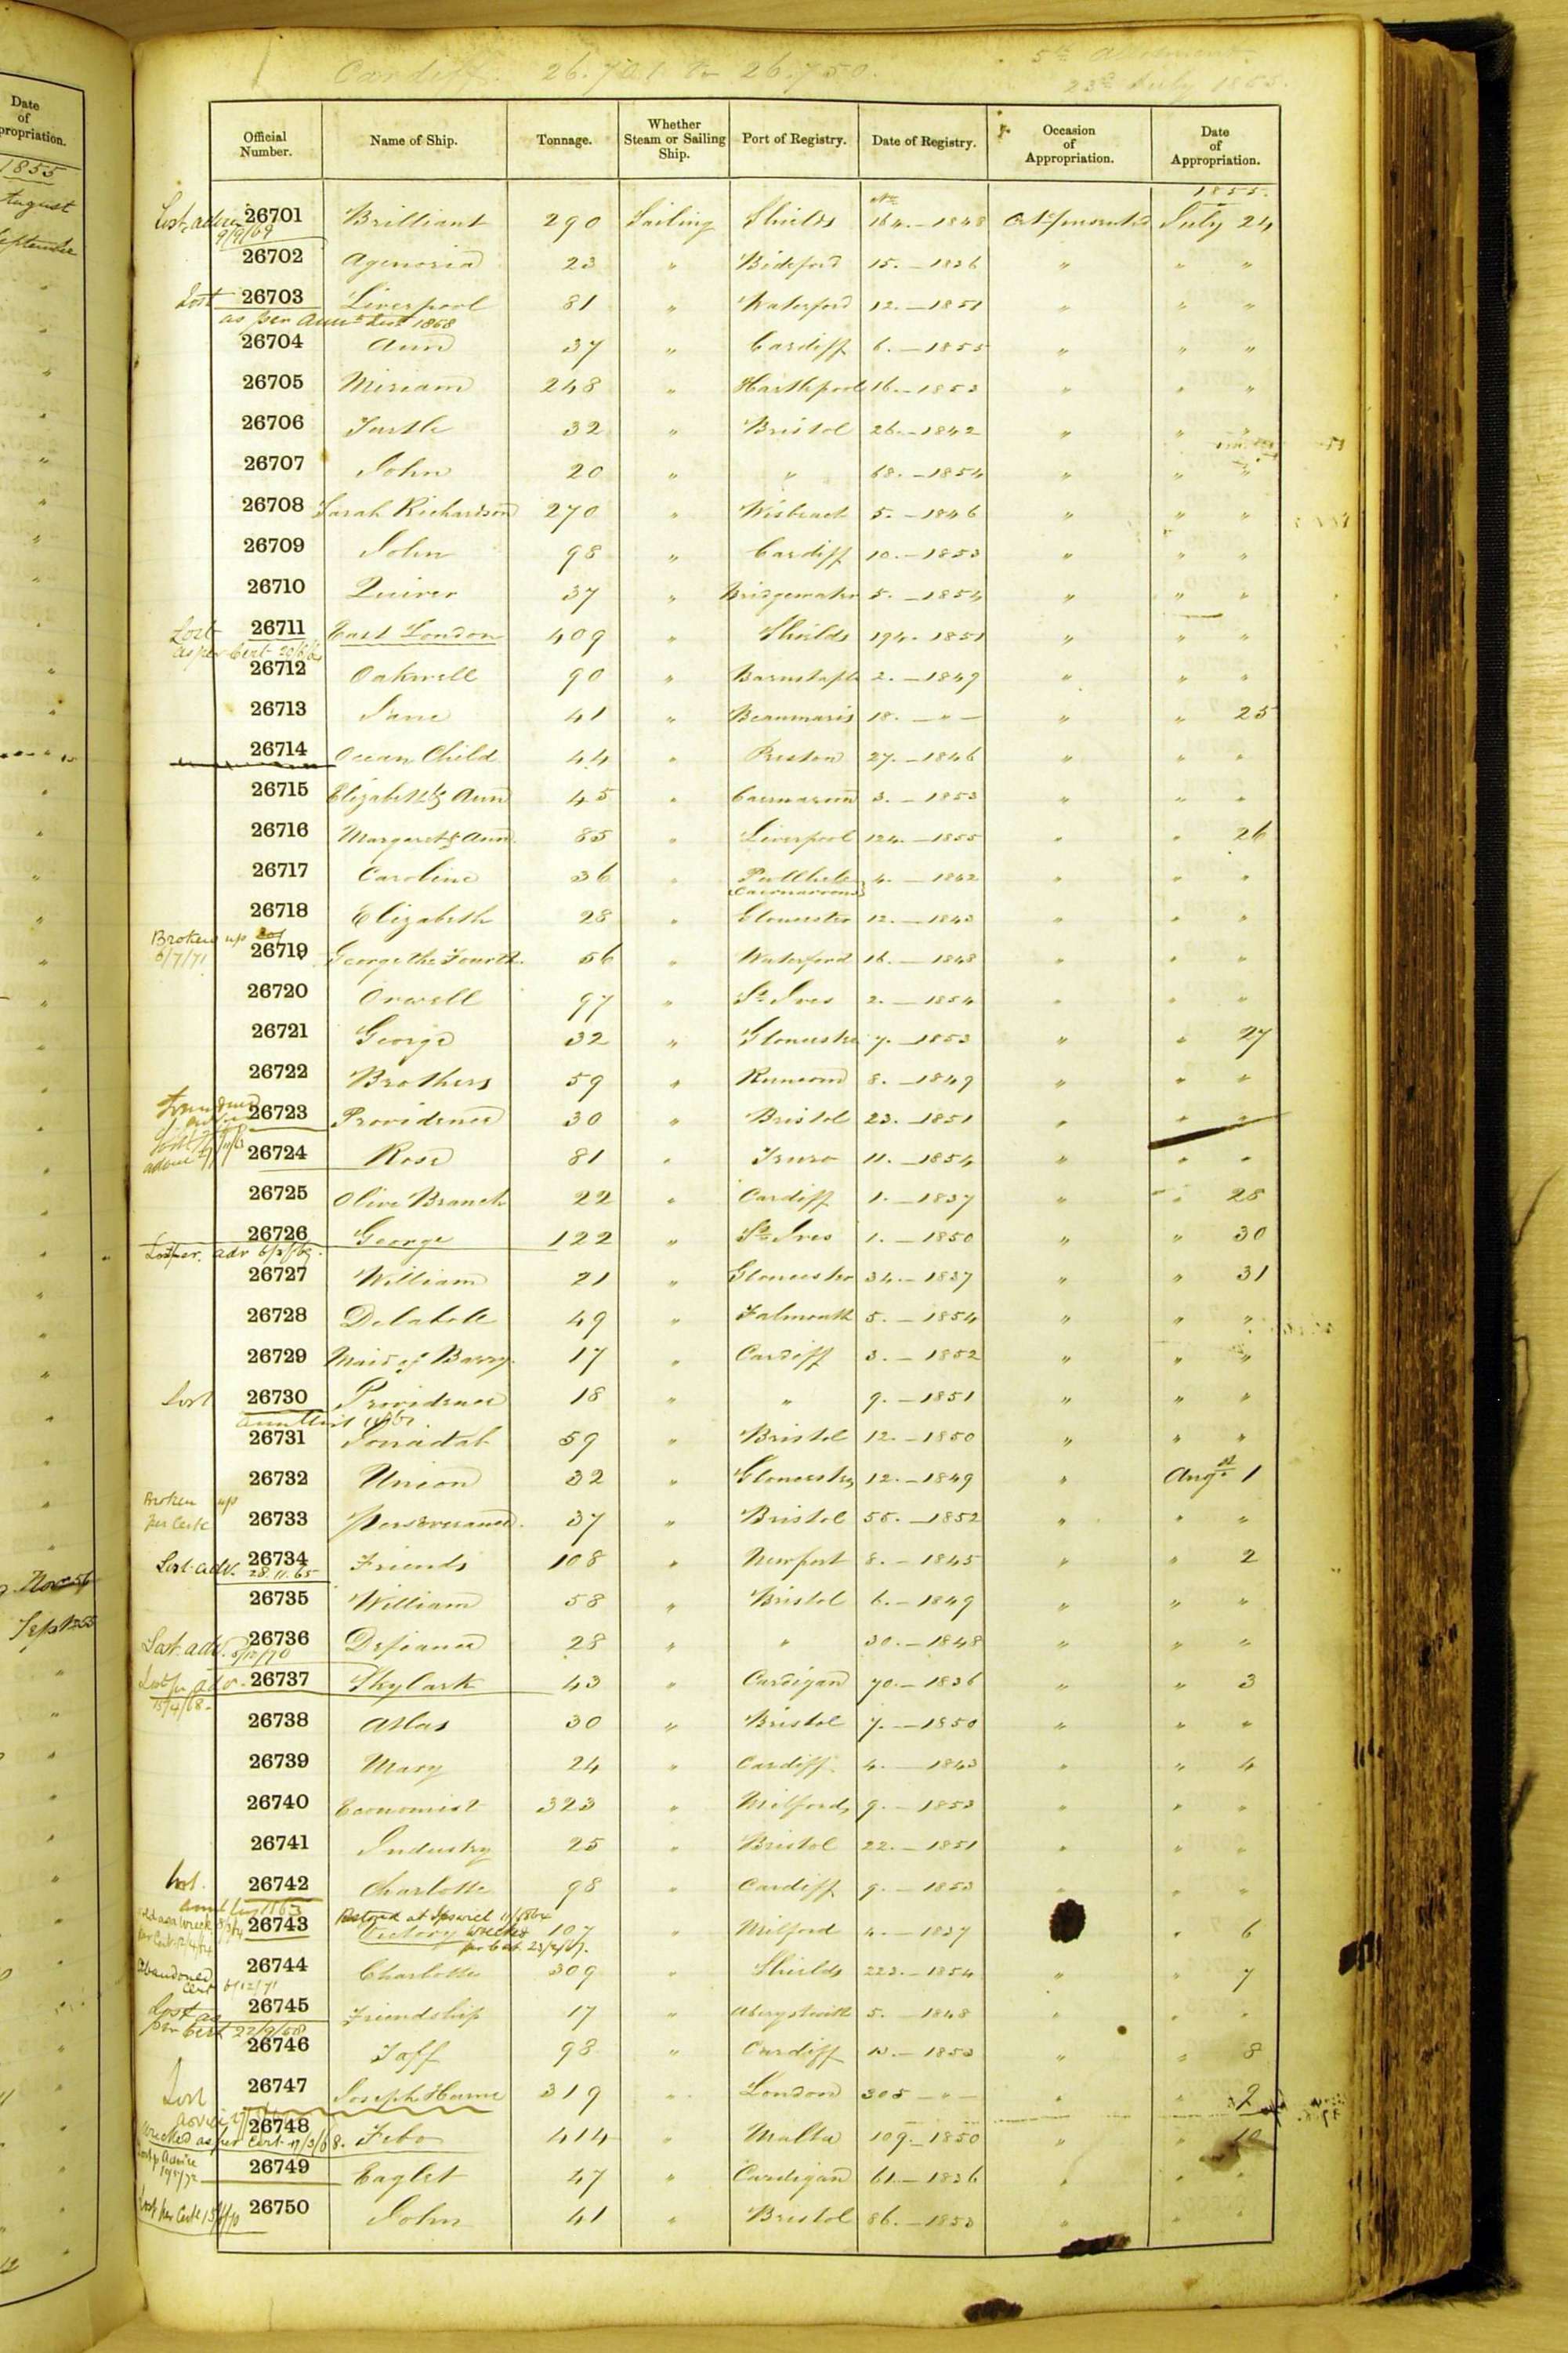 Date
of
propriation.
1855
August
September
Nov 56
Cardiff. 26.701 to 26.750.
5th Allotment
23rd July 1855.
Official Number. Name of Ship. Tonnage. Whether Steam or Sailing Ship. Port of Registry. Date of Registry. Occasion of Appropriation. Date of Appropriation.
1855.
Lost advice 9/9/69 26701 Brilliant 290 Sailing Shields No 164. - 1848 July 24
26702 Agenoria 23 " Bideford 15. - 1836 " " "
Lost 26703 Liverpool 81 " Waterford 12. - 1851 " " "
as per Annl List 1868
26704 Ann 37 " Cardiff 6. - 1855 " " "
26705 Miriam 248 " Hartlepool 16. - 1853 " " "
26706 Turtle 32 " Bristol 26. - 1842 " " "
26707 John 20 " " 68. - 1854 " " "
26708 Sarah Richardson 270 " Wisbeach 5. - 1846 " " "
26709 John 98 " Cardiff 10. - 1853 " " "
26710 Quiver 37 " Bridgewater 5. - 1854 " " "
Lost 26711 East London 409 " Shields 194. 1851 " " "
as per Cert 20/6/6
26712 Oakwell 90 " Barnstaple 2. - 1849 " " "
26713 Jane 41 " Beaumaris 18. - " - " " 25
26714 Ocean Child 44 " Preston 27. - 1846 " " "
26715 Elizabeth & Ann 45 " Caernarvon 3. - 1853 " " "
26716 Margaret & Ann. 85 " Liverpool 124. - 1855 " " 26
26717 Caroline 36 " Pullheli (Caernarvon) 4. - 1842 " " "
26718 Elizabeth 28 " Gloucester 12. - 1843 " " "
Broken up 6/7/71 26719 George the Fourth. 56 " Waterford 16. - 1848 " " "
26720 Orwell 97 " St Ives 2. - 1854 " " "
26721 George 32 " Gloucester 7. - 1853 " " 27
26722 Brothers 59 " Runcorn 8. - 1849 " " "
Foundered 26723 Providence 30 " Bristol 23. - 1851 " " "
26724 Rose 81 " Truro 11. - 1854 " " "
26725 Olive Branch 22 " Cardiff 1. - 1837 " " 28
26726 George 122 " St Ives 1. - 1850 " " 30
Lost per. adv 6/3/69.
26727 William 21 " Gloucester 34. - 1837 " " 31
26728 Delabole 49 " Falmouth 5. - 1854 " " "
26729 Maid of Barry. 17 " Cardiff 3. - 1852 " " "
Lost 26730 Providence 18 " " 9. - 1851 " " "
26731 Jonadab 59 " Bristol 12. - 1850 " " "
26732 Union 32 " Gloucester 12. - 1849 " Augst 1
Broken up per Certe 26733 Perseverance. 37 " Bristol 55. - 1852 " " "
Lost adv. 28.11.65 26734 Friends 108 " Newport 8. - 1845 " " 2
26735 William 58 " Bristol 6. - 1849 " " "
Lost adv. 5/12/70 26736 Defiance 28 " " 30. - 1848 " " "
Lost pr adv. 15/4/68 - 26737 Skylark 43 " Cardigan 70. - 1836 " " 3
26738 Atlas 30 " Bristol 7. - 1850 " " "
26739 Mary 24 " Cardiff. 4. - 1843 " " 4
26740 Economist 323 " Milford 9. - 1853 " " "
26741 Industry 25 " Bristol 22. - 1851 " " "
Lost. 26742 Charlotte 98 " Cardiff 9. - 1853 " " "
Annl List 1863
Sold as a wreck per Cert. 12/4/64 26743 Restored at Ipswich 11/1864 Victory wrecked per Cert. 107 " Milford 4. - 1837 " 6
Abandoned Cert 6/12/71 26744 Charlotte 309 " Shields 223. - 1854 " " 7
Lost as per Cert 22/9/68 26745 Friendship 17 " Aberystwith 5. - 1848 " " "
26746 Taff 98 " Cardiff 13. - 1853 " " 8
Lost advice 26747 Joseph Hume 319 " London 305 - " - " "
Wrecked as per Cert 17/3/68. 26748 Febo 414 " Malta 109. - 1850 " " 10
Lost pr Advice 26749 Eaglet 47 " Cardigan 61. - 1836 " " "
Lost per Certe 26750 John 41 " Bristol 86. - 1853 " " "